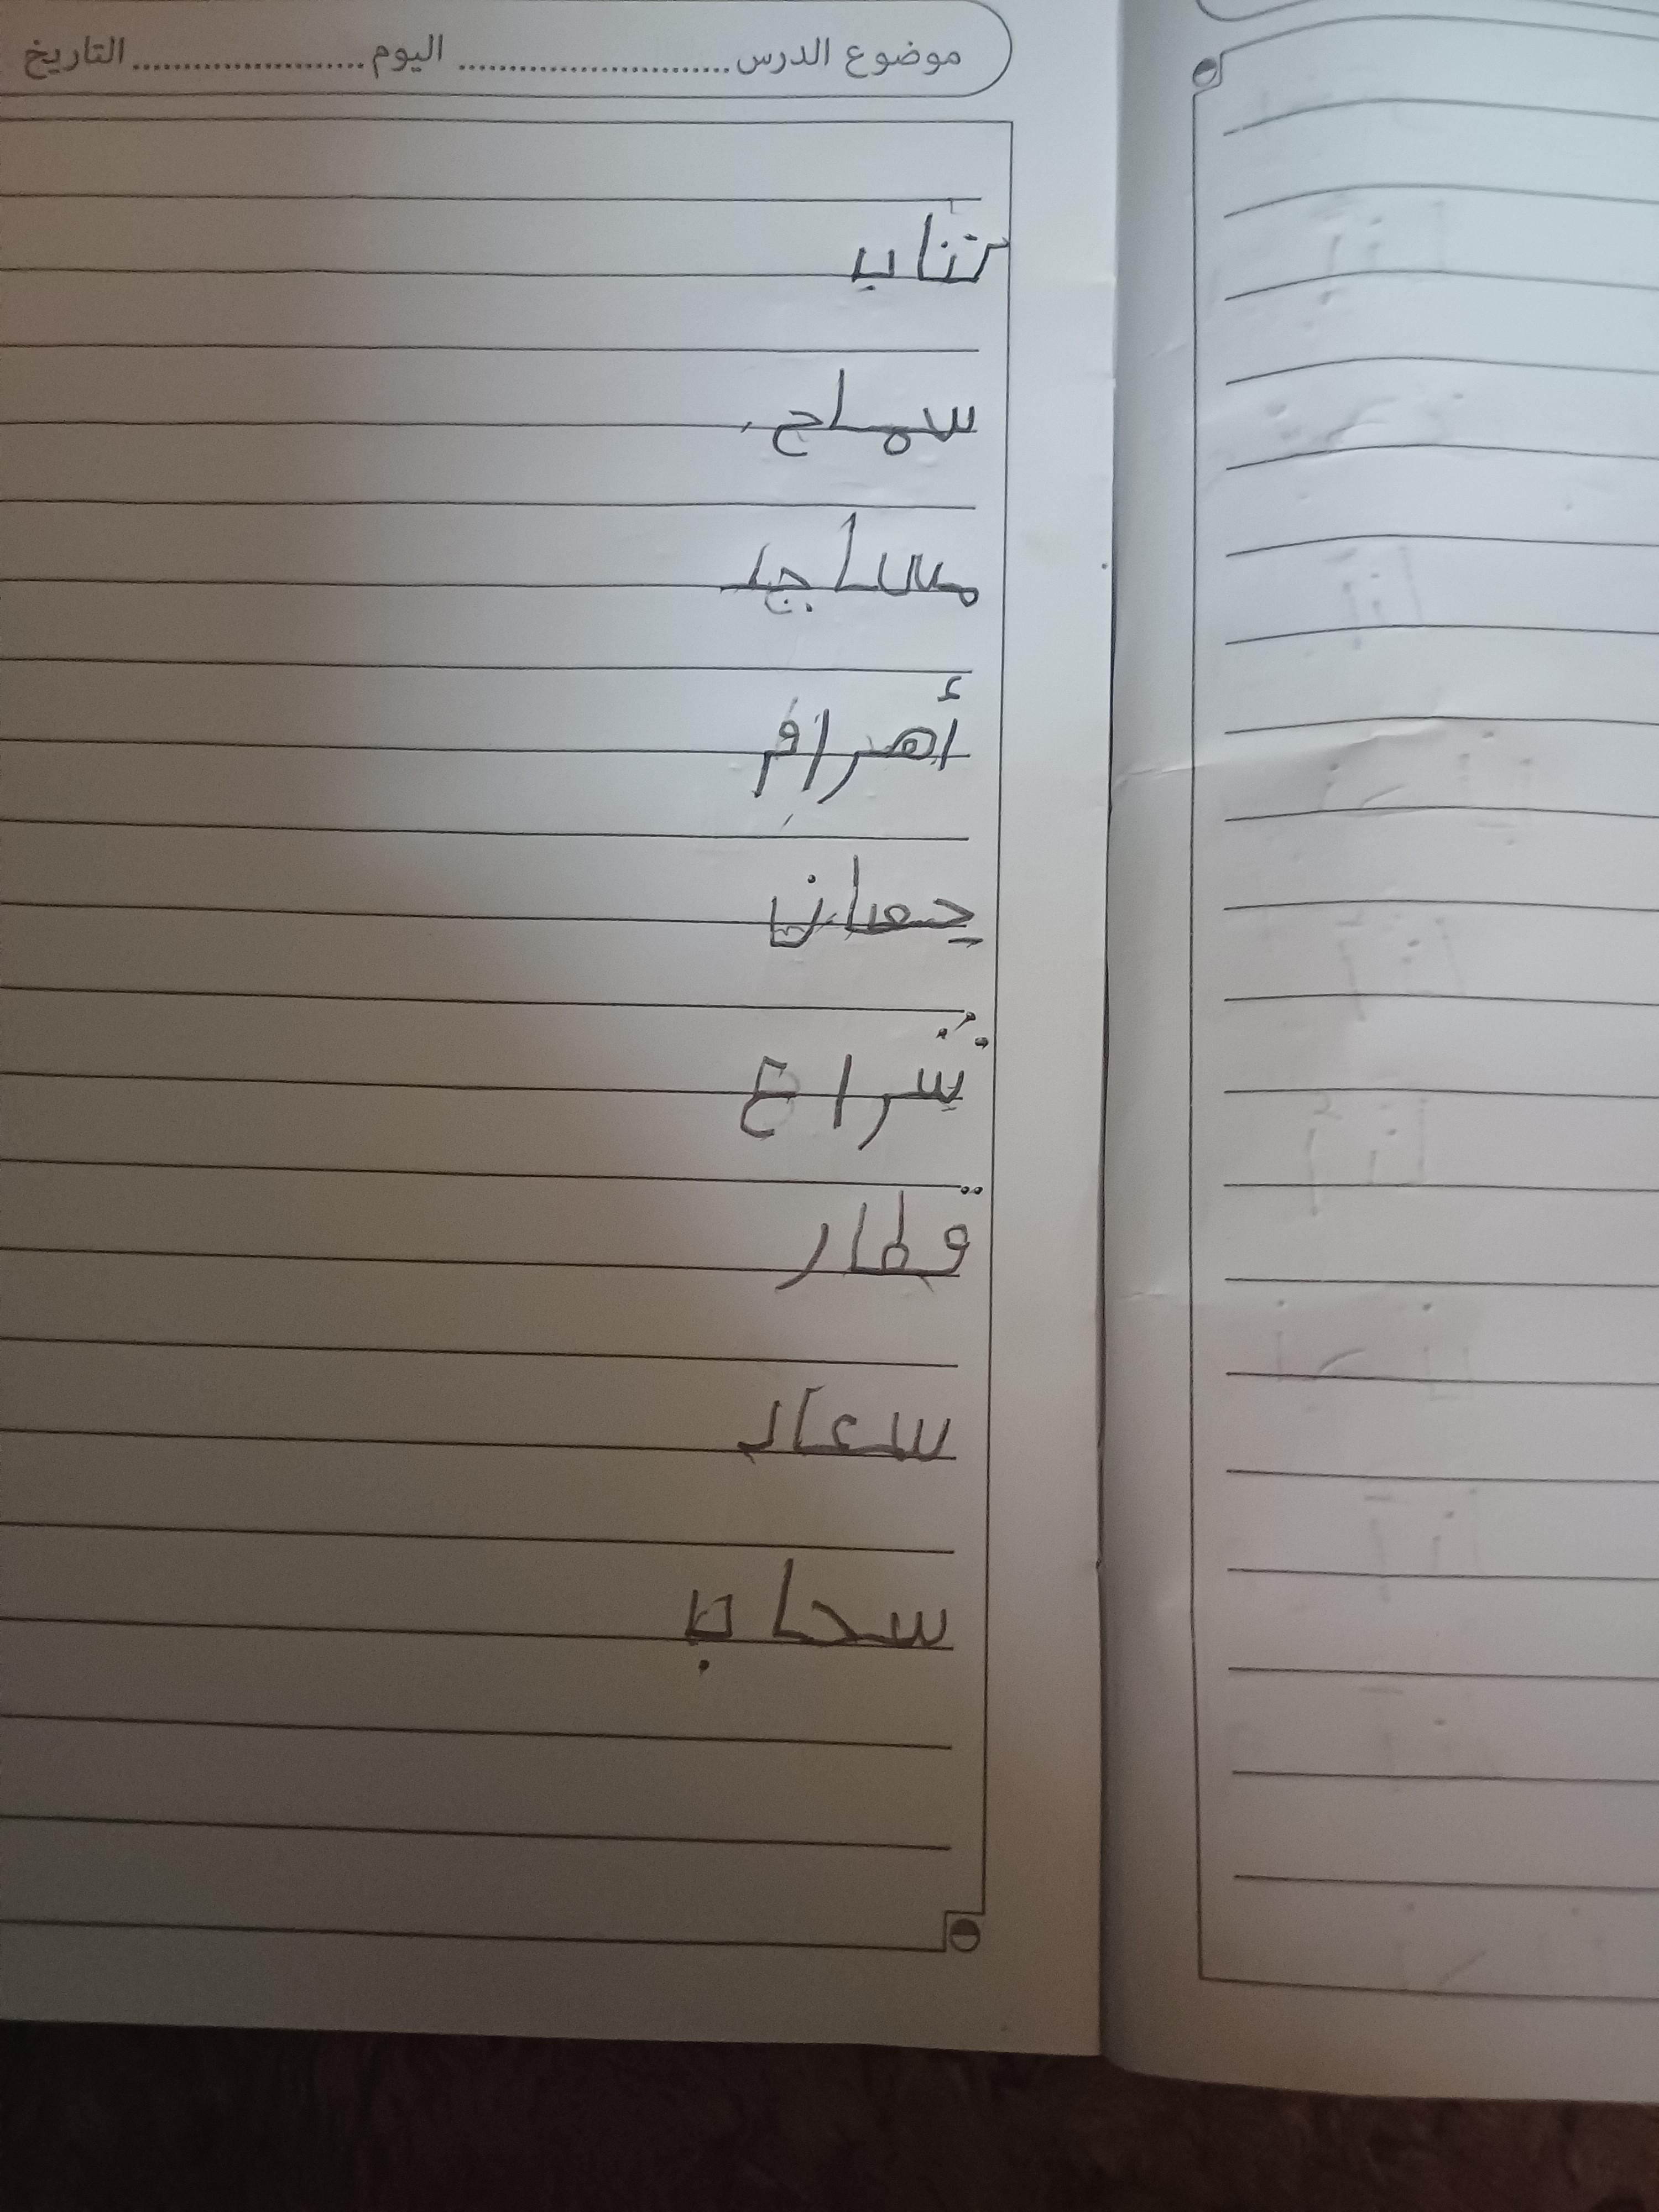 موضوع الدرس ........................ اليوم .................... التاريخ
كتاب
سماح
مساجد
أهرام
شراع
قطار
سعاد
سحاب